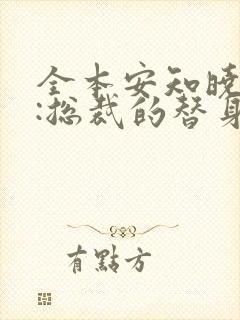 全本安知晓
:总裁的替身
有點方